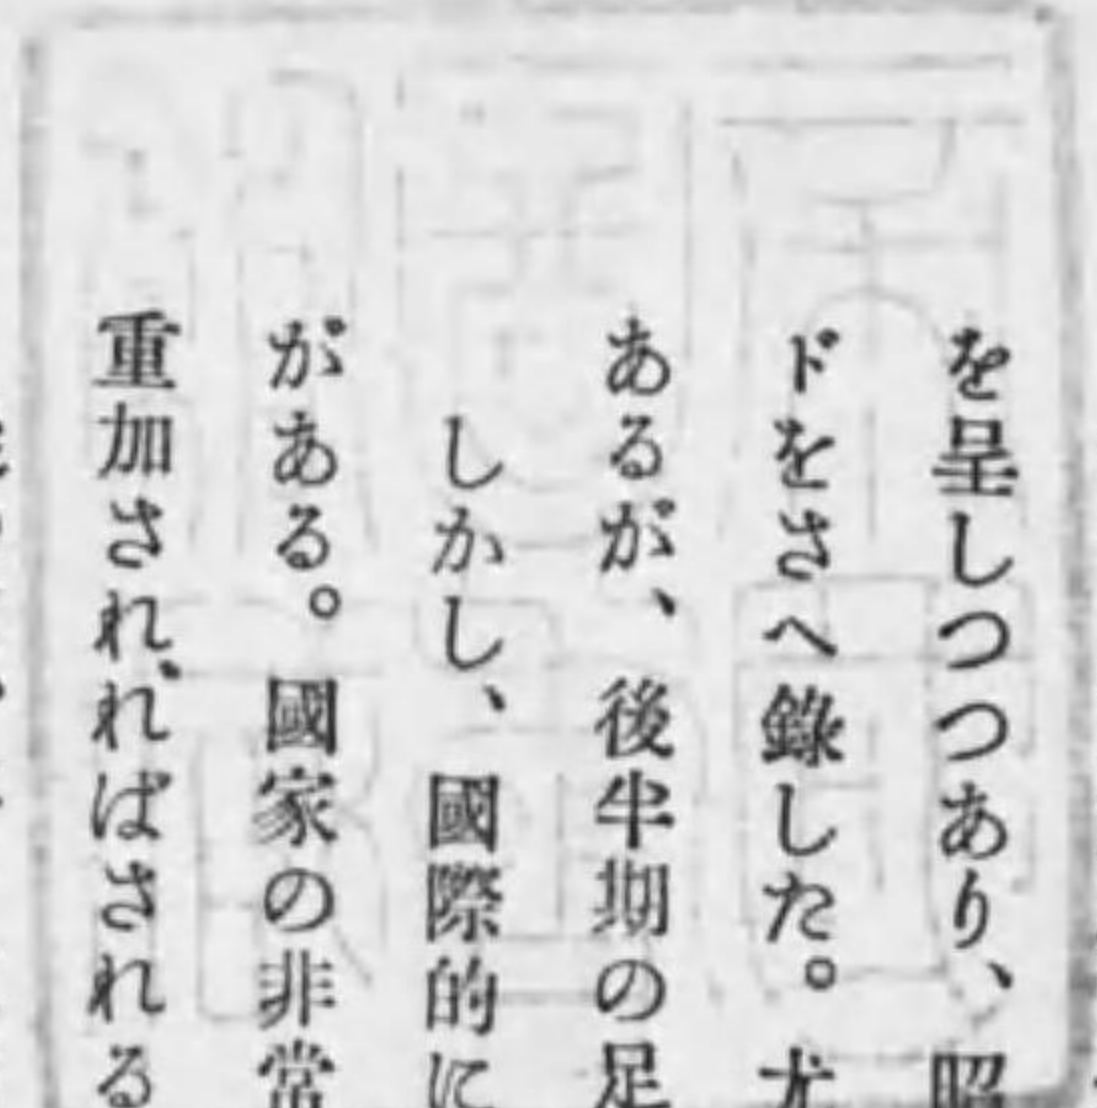 を呈しつつあり、昭
ドをさへ錄した。尤
あるが、後半期の足
しかし、國際的に
がある。國家の非常
重加され、ればされる